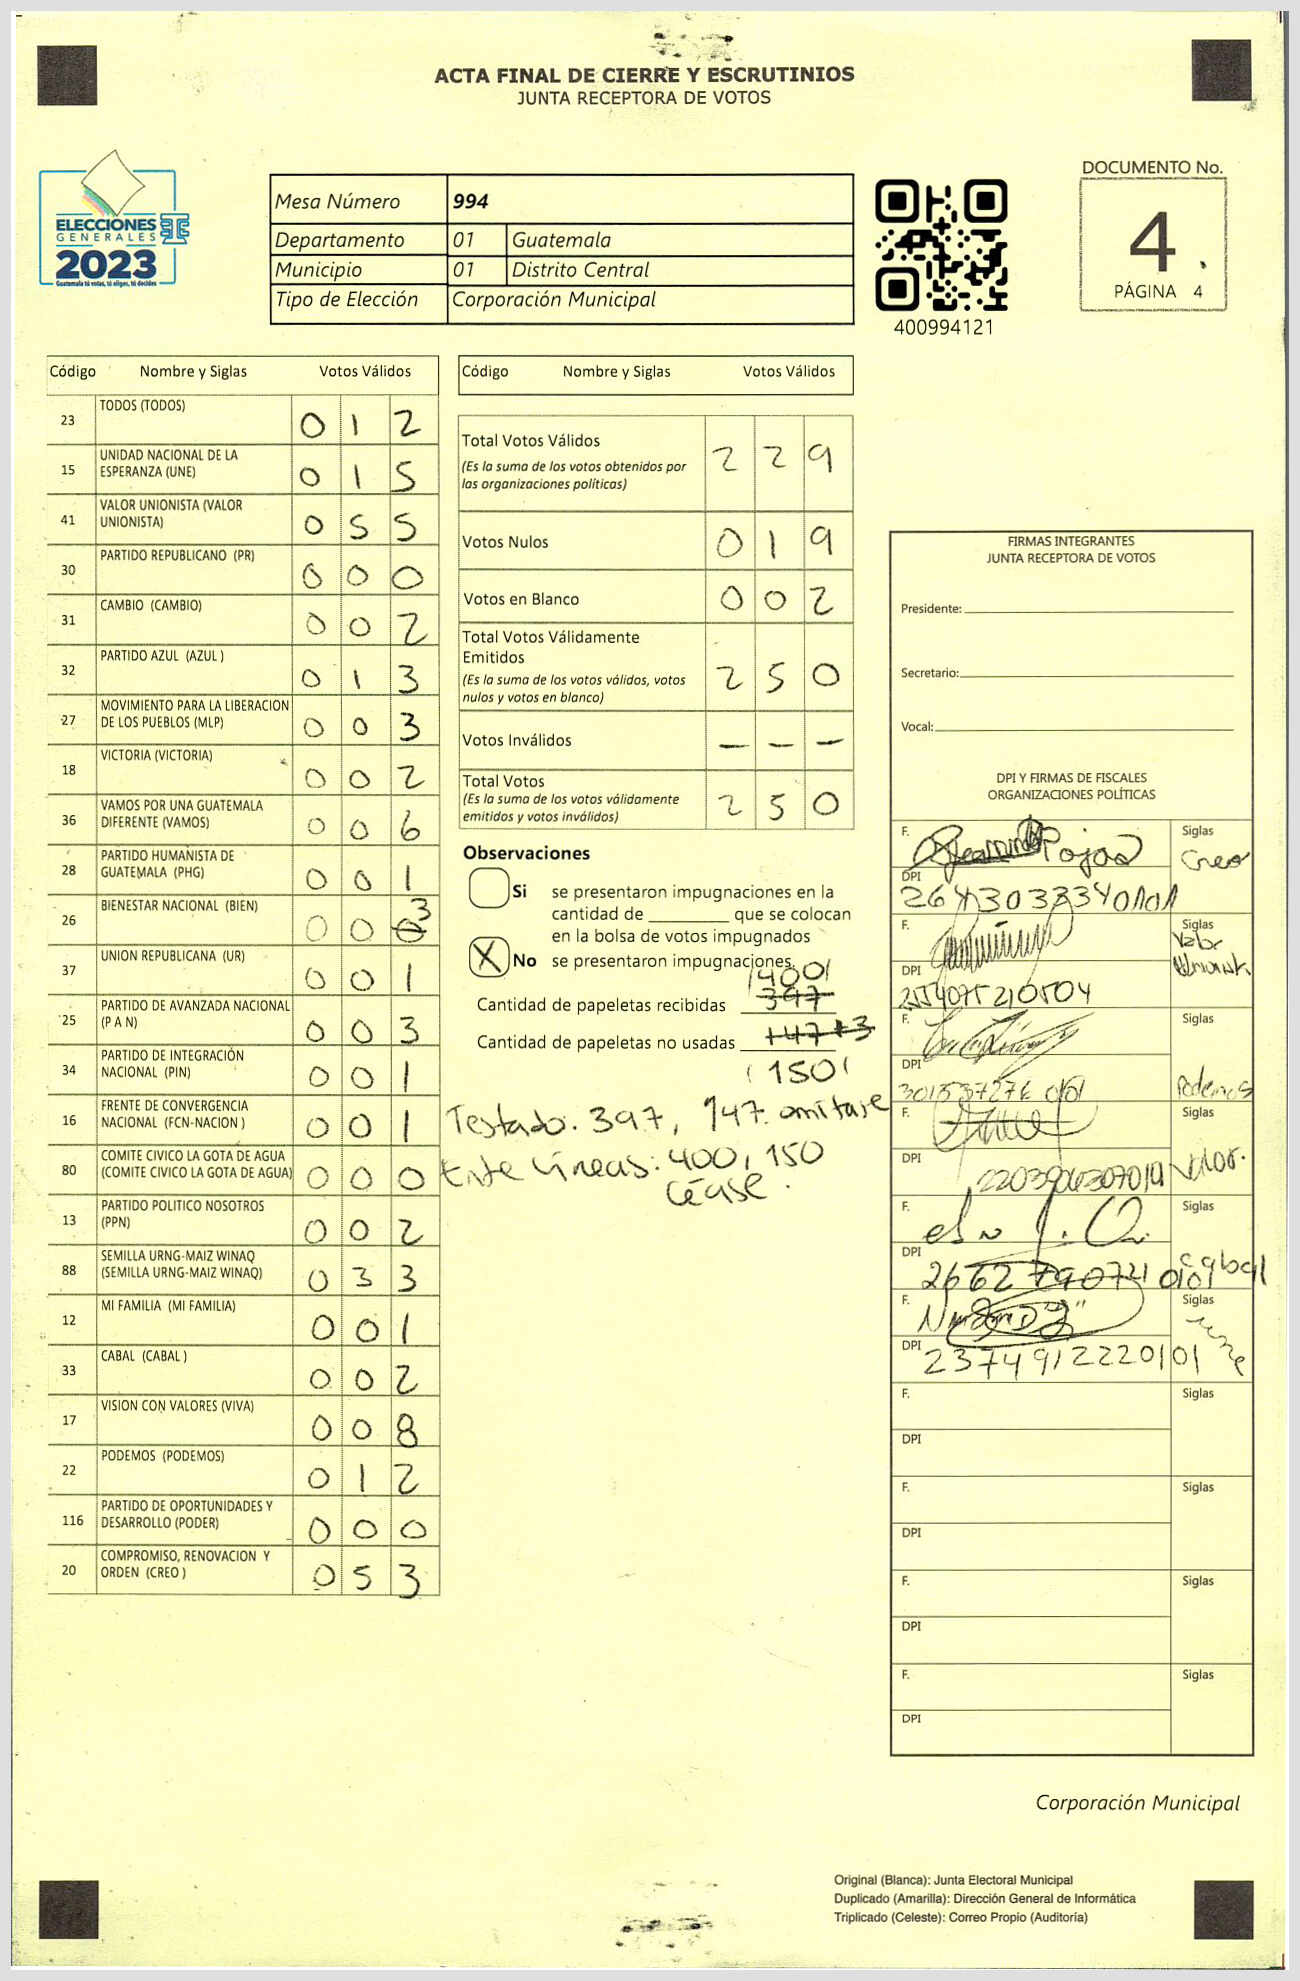 ACTA FINAL DE CIERRE Y ESCRUTINIOS
JUNTA RECEPTORA DE VOTOS
ELECCIONES
GENERALES
2023
Guatemala tú votas, tú eliges, tú decides
Mesa Número 994
Departamento 01 Guatemala
Municipio 01 Distrito Central
Tipo de Elección Corporación Municipal
400994121
DOCUMENTO No.
4
PÁGINA 4
Código Nombre y Siglas Votos Válidos
23 TODOS (TODOS) 0 1 2
15 UNIDAD NACIONAL DE LA
ESPERANZA (UNE) 0 1 5
41 VALOR UNIONISTA (VALOR
UNIONISTA) 0 5 5
30 PARTIDO REPUBLICANO (PR) 0 0 0
31 CAMBIO (CAMBIO) 0 0 2
32 PARTIDO AZUL (AZUL ) 0 1 3
27 MOVIMIENTO PARA LA LIBERACION
DE LOS PUEBLOS (MLP) 0 0 3
18 VICTORIA (VICTORIA) 0 0 2
36 VAMOS POR UNA GUATEMALA
DIFERENTE (VAMOS) 0 0 6
28 PARTIDO HUMANISTA DE
GUATEMALA (PHG) 0 0 1
26 BIENESTAR NACIONAL (BIEN) 0 0 3
37 UNION REPUBLICANA (UR) 0 0 1
25 PARTIDO DE AVANZADA NACIONAL
(P A N) 0 0 3
34 PARTIDO DE INTEGRACIÓN
NACIONAL (PIN) 0 0 1
16 FRENTE DE CONVERGENCIA
NACIONAL (FCN-NACION ) 0 0 1
80 COMITE CIVICO LA GOTA DE AGUA
(COMITE CIVICO LA GOTA DE AGUA) 0 0 0
13 PARTIDO POLITICO NOSOTROS
(PPN) 0 0 2
88 SEMILLA URNG-MAIZ WINAQ
(SEMILLA URNG-MAIZ WINAQ) 0 3 3
12 MI FAMILIA (MI FAMILIA) 0 0 1
33 CABAL (CABAL ) 0 0 2
17 VISION CON VALORES (VIVA) 0 0 8
22 PODEMOS (PODEMOS) 0 1 2
116 PARTIDO DE OPORTUNIDADES Y
DESARROLLO (PODER) 0 0 0
20 COMPROMISO, RENOVACION Y
ORDEN (CREO ) 0 5 3
Código Nombre y Siglas Votos Válidos
Total Votos Válidos 2 2 9
(Es la suma de los votos obtenidos por
las organizaciones políticas)
Votos Nulos 0 1 9
Votos en Blanco 0 0 2
Total Votos Válidamente
Emitidos 2 5 0
(Es la suma de los votos válidos, votos
nulos y votos en blanco)
Votos Inválidos — — —
Total Votos 2 5 0
(Es la suma de los votos válidamente
emitidos y votos inválidos)
Observaciones
Si se presentaron impugnaciones en la
cantidad de ________ que se colocan
en la bolsa de votos impugnados
X No se presentaron impugnaciones.
400
Cantidad de papeletas recibidas 397
Cantidad de papeletas no usadas 147+3
150
Testado: 397, 147. omitase
Entre líneas: 400, 150
Céase.
FIRMAS INTEGRANTES
JUNTA RECEPTORA DE VOTOS
Presidente:
Secretario:
Vocal:
DPI Y FIRMAS DE FISCALES
ORGANIZACIONES POLÍTICAS
F. Rojas Siglas
Creo
DPI
F. Siglas
Valor
DPI
F. Siglas
DPI
Podemos
F. Siglas
DPI
Valor.
F. Siglas
DPI 2662790740101 cabal
F. Siglas
une
DPI 2374912220101
F. Siglas
DPI
F. Siglas
DPI
F. Siglas
DPI
F. Siglas
DPI
Corporación Municipal
Original (Blanca): Junta Electoral Municipal
Duplicado (Amarilla): Dirección General de Informática
Triplicado (Celeste): Correo Propio (Auditoría)